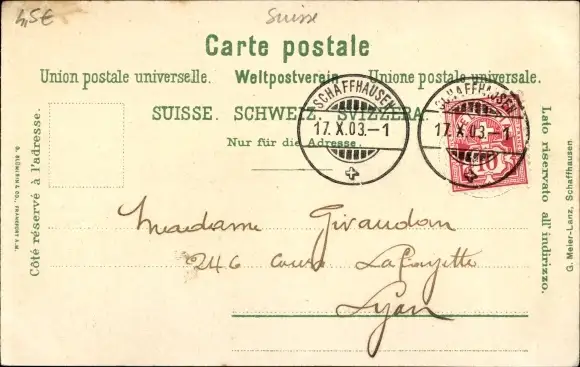 4,5€
Suisse
Carte postale
Union postale universelle. Weltpostverein. Unione postale universale.
SUISSE. SCHWEIZ. SVIZZERA.
Nur für die Adresse.
SCHAFFHAUSEN
17.X.03.–1
SCHAFFHAUSEN
17.X.03.–1
10
Madame Giraudon
246 cours Lafayette
Lyon
Côté réservé à l'adresse.
Lato riservato all' indirizzo.
G. Meier-Lanz, Schaffhausen.